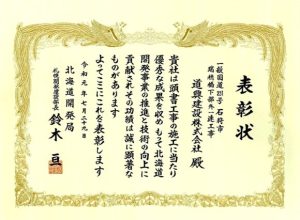 表彰状
一般国道231号 石狩市
瑞穂橋下部外一連工事
道興建設株式会社 殿
貴社は頭書工事の施工に当たり
優秀な成果を収め もって北海道
開発事業の推進と技術の向上に
貢献されその功績は誠に顕著な
ものがあります
よってここにこれを表彰します
令和元年七月二十九日
北海道開発局
札幌開発建設部長 鈴木 亘